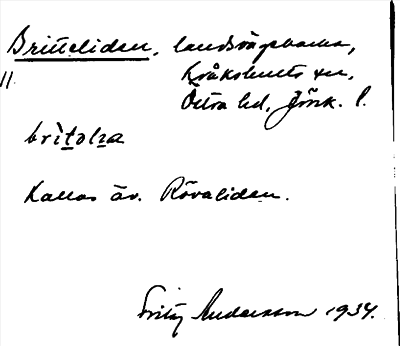 Britteliden, landsvägsbacke,
Kråkshults sn,
Östra hd, Jönk. l.
11
britəlɩa
Kallas äv. Rövaliden.
Fritz Andersson 1934.